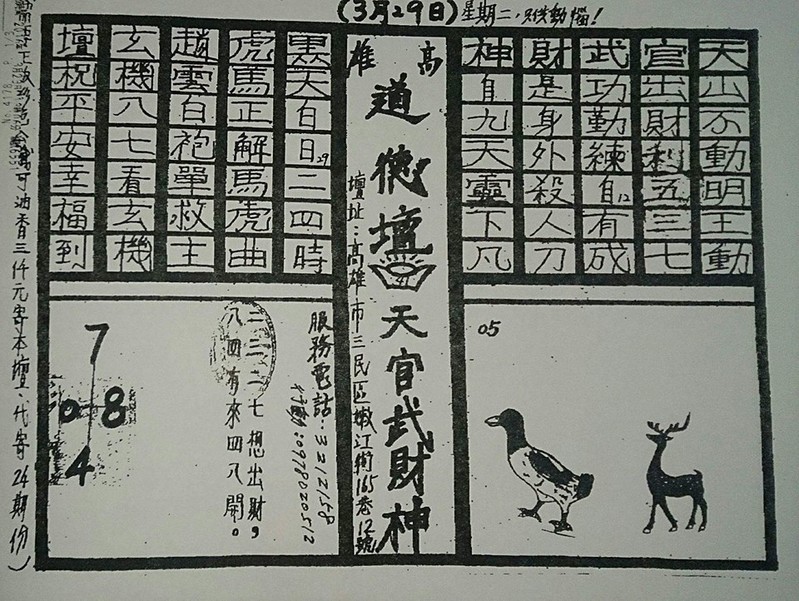 (3月29日)星期二,只供動惱!
天山不動明王動
官出財利五三七
武功勤練自12有成
財是身外殺人刀
神自九天靈下凡
高雄
道德壇
天官武財神
壇址:高雄市三民區嫩江街165巷12號
黑天白日29二四時
虎馬正解馬虎曲
趙雲白袍單救主
玄機八七看玄機
壇祝平安幸福到
05
服務電話:3212158
行動:0978020512
二三二七想出財,
八四有來四八開。
7
0 8
4
可油香三仟元寄本壇、代寄24期份)